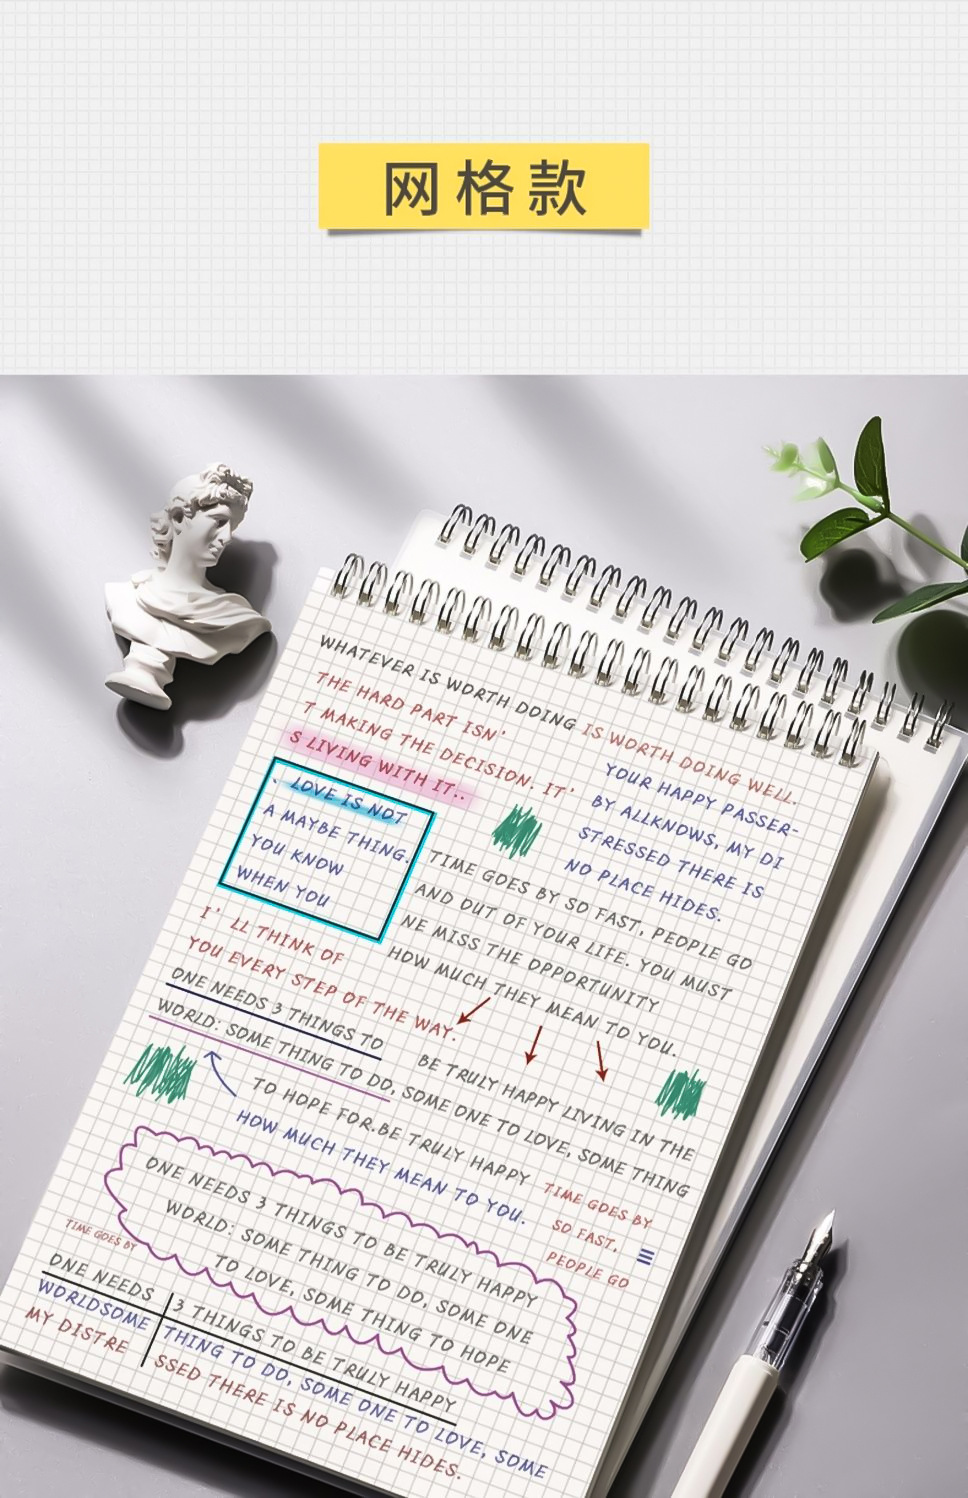 网格款
WHATEVER IS WORTH DOING IS WORTH DOING WELL.
THE HARD PART ISN'
T MAKING THE DECISION. IT'
S LIVING WITH IT..
YOUR HAPPY PASSER-
BY ALLKNOWS, MY DI
STRESSED THERE IS
NO PLACE HIDES.
. LOVE IS NOT
A MAYBE THING.
YOU KNOW
WHEN YOU
TIME GOES BY SO FAST, PEOPLE GO
AND OUT OF YOUR LIFE. YOU MUST
NE MISS THE OPPORTUNITY
HOW MUCH THEY MEAN TO YOU.
I' LL THINK OF
YOU EVERY STEP OF THE WAY.
ONE NEEDS 3 THINGS TO
BE TRULY HAPPY LIVING IN THE
WORLD: SOME THING TO DO, SOME ONE TO LOVE, SOME THING
TO HOPE FOR.BE TRULY HAPPY
HOW MUCH THEY MEAN TO YOU.
TIME GOES BY
SO FAST,
PEOPLE GO
ONE NEEDS 3 THINGS TO BE TRULY HAPPY
WORLD: SOME THING TO DO, SOME ONE
TO LOVE, SOME THING TO HOPE
TIME GOES BY
ONE NEEDS 3 THINGS TO BE TRULY HAPPY
WORLDSOME THING TO DO, SOME ONE TO LOVE, SOME
MY DISTRE SSED THERE IS NO PLACE HIDES.